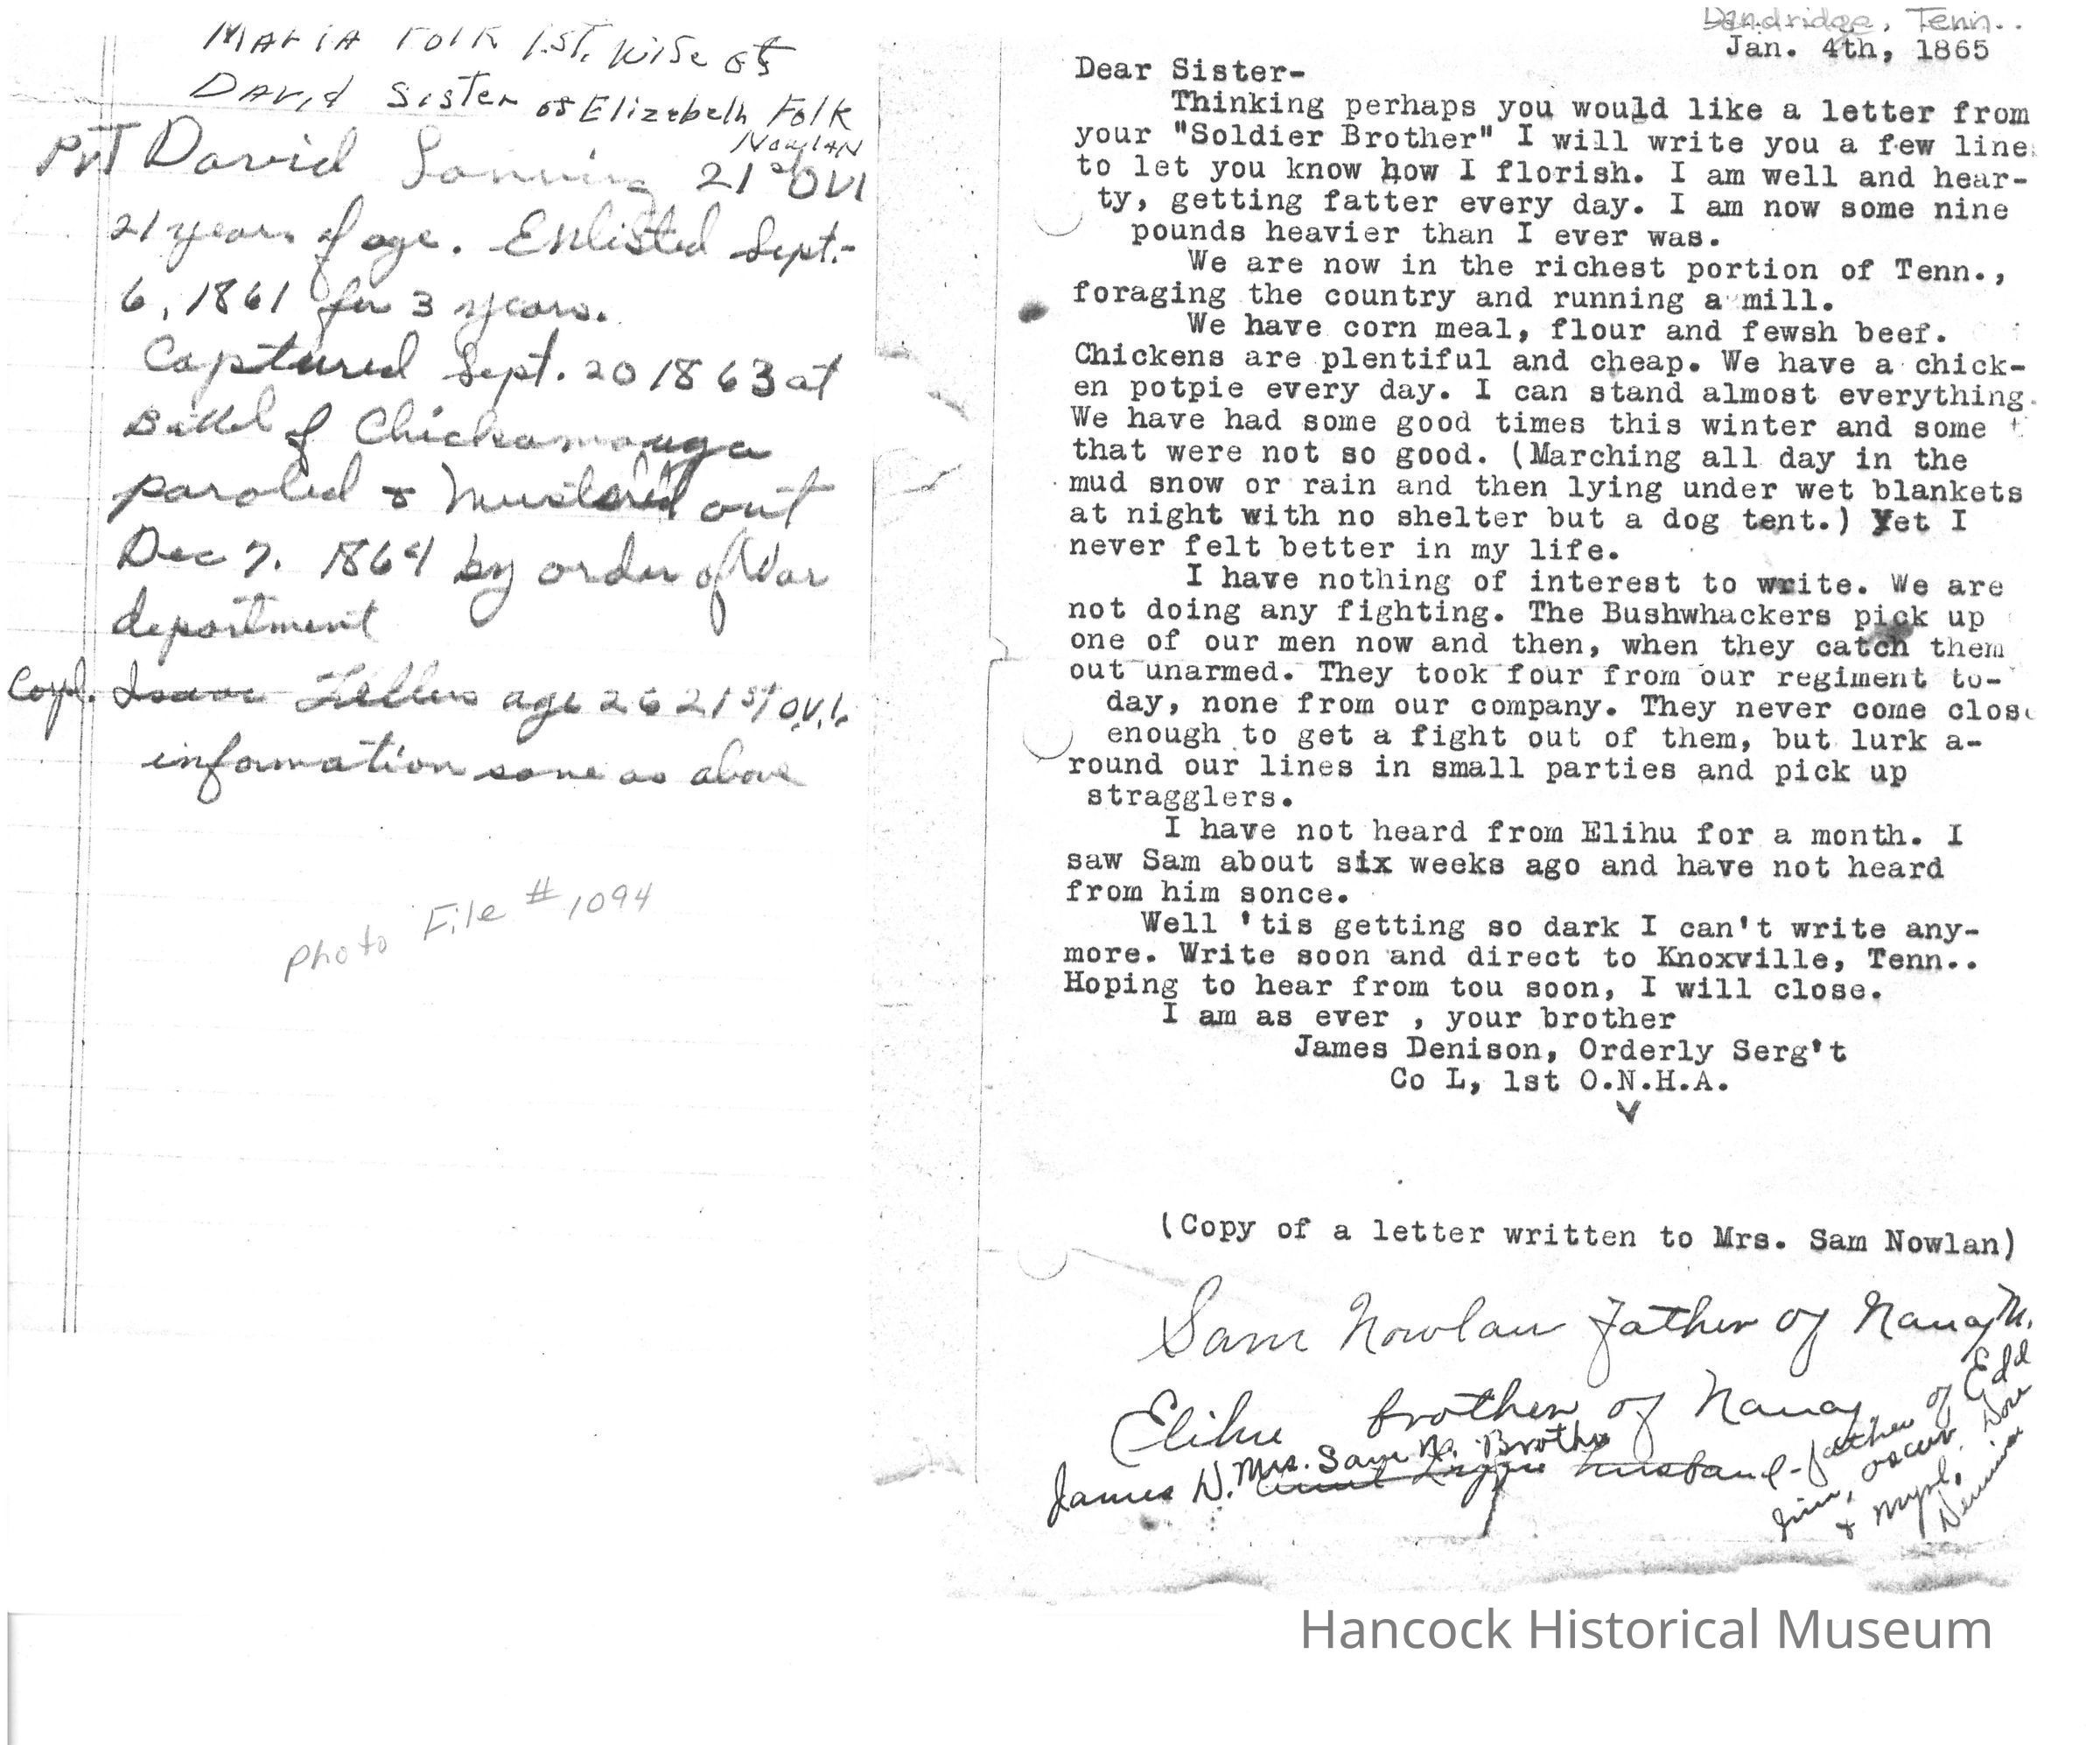 Maria Folk 1st. wife of
David Sister of Elizebeth Folk
Nowlan
Pvt David 21st OVI
21 years of age. Enlisted Sept.
6, 1861 for 3 years.
Captured Sept. 20 1863 at
Battel of Chickamauga
paroled & Mustered out
Dec 7. 1864 by order of War
department
Corpl. Isaac Zellers age 26 21st O.V.I.
information same as above
Photo File #1094
Dandridge, Tenn..
Jan. 4th, 1865
Dear Sister-
Thinking perhaps you would like a letter from
your "Soldier Brother" I will write you a few line
to let you know how I florish. I am well and hear-
ty, getting fatter every day. I am now some nine
pounds heavier than I ever was.
We are now in the richest portion of Tenn.,
foraging the country and running a mill.
We have corn meal, flour and fewsh beef.
Chickens are plentiful and cheap. We have a chick-
en potpie every day. I can stand almost everything.
We have had some good times this winter and some
that were not so good. (Marching all day in the
mud snow or rain and then lying under wet blankets
at night with no shelter but a dog tent.) Yet I
never felt better in my life.
I have nothing of interest to write. We are
not doing any fighting. The Bushwhackers pick up
one of our men now and then, when they catch them
out unarmed. They took four from our regiment to-
day, none from our company. They never come close
enough to get a fight out of them, but lurk a-
round our lines in small parties and pick up
stragglers.
I have not heard from Elihu for a month. I
saw Sam about six weeks ago and have not heard
from him sonce.
Well 'tis getting so dark I can't write any-
more. Write soon and direct to Knoxville, Tenn..
Hoping to hear from tou soon, I will close.
I am as ever , your brother
James Denison, Orderly Serg't
Co L, 1st O.N.H.A.
(Copy of a letter written to Mrs. Sam Nowlan)
Sam Nowlan father of Nancy N.
Elihu brother of Nancy
Mrs. Sam N. Brother
James D. husband-father of Edd
Jim, Oscar, Dow
& Myrl, Denison
Hancock Historical Museum